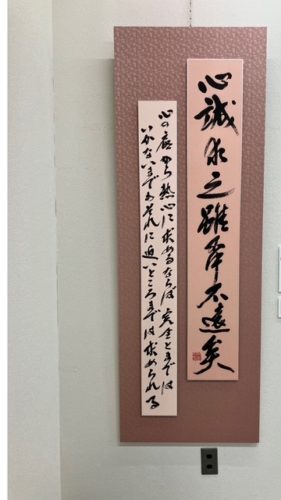 心誠求之雖不中不遠矣
心の底から熱心に求めるならば完全とまでは
いかないまでもそれに近いところまでは求められる